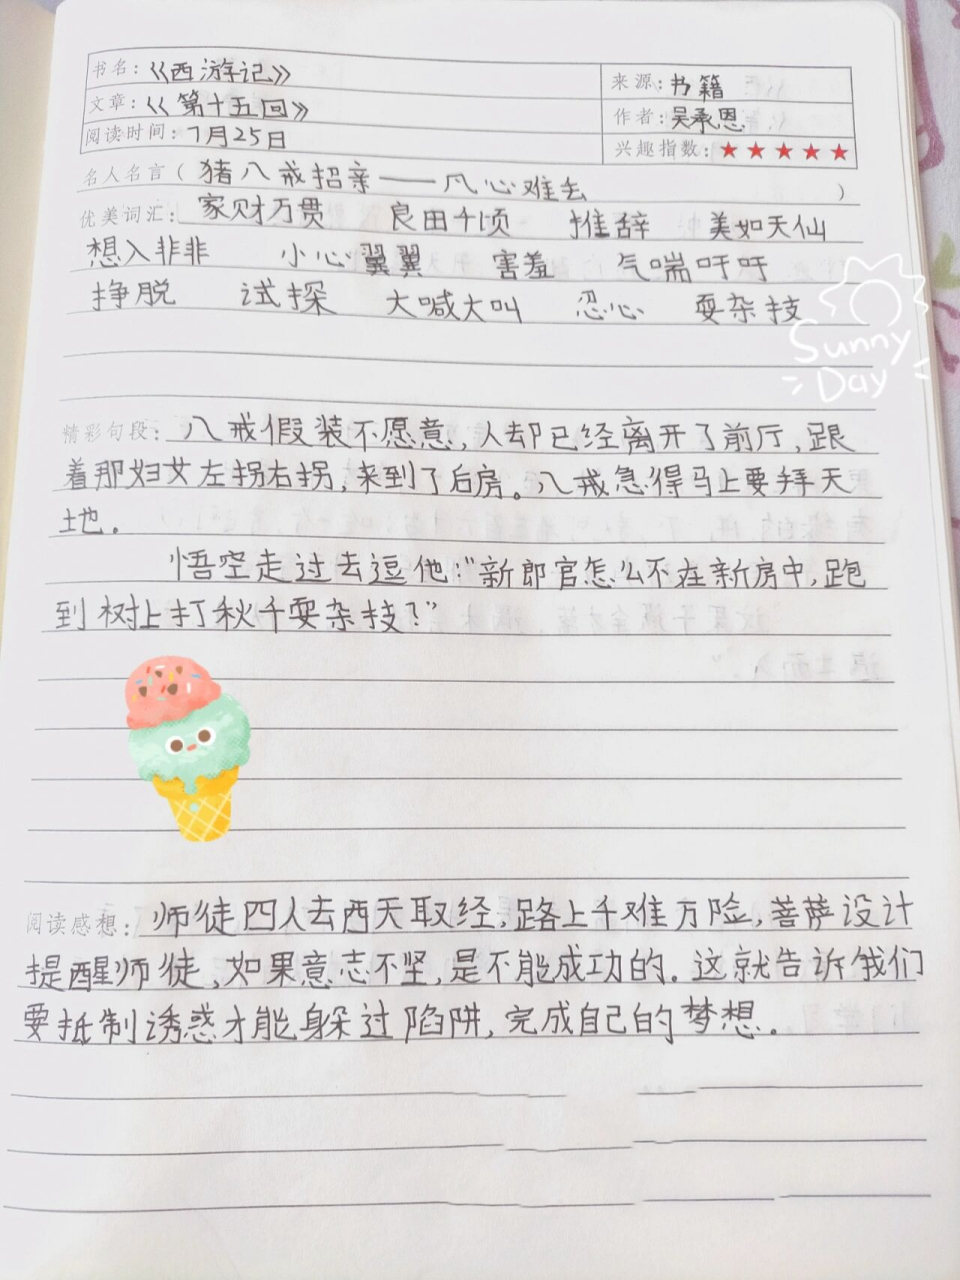 书名：《西游记》
来源：书籍
文章：《第十五回》
作者：吴承恩
阅读时间：7月25日
兴趣指数：★★★★★
名人名言（猪八戒招亲——凡心难去）
优美词汇：家财万贯 良田千顷 推辞 美如天仙
想入非非 小心翼翼 害羞 气喘吁吁
挣脱 试探 大喊大叫 忍心 耍杂技
Sunny
Day
精彩句段：八戒假装不愿意，人却已经离开了前厅，跟
着那妇女左拐右拐，来到了后房。八戒急得马上要拜天
地。
悟空走过去逗他："新郎官怎么不在新房中，跑
到树上打秋千耍杂技？"
阅读感想：师徒四人去西天取经，路上千难万险，菩萨设计
提醒师徒，如果意志不坚，是不能成功的。这就告诉我们
要抵制诱惑才能躲过陷阱，完成自己的梦想。